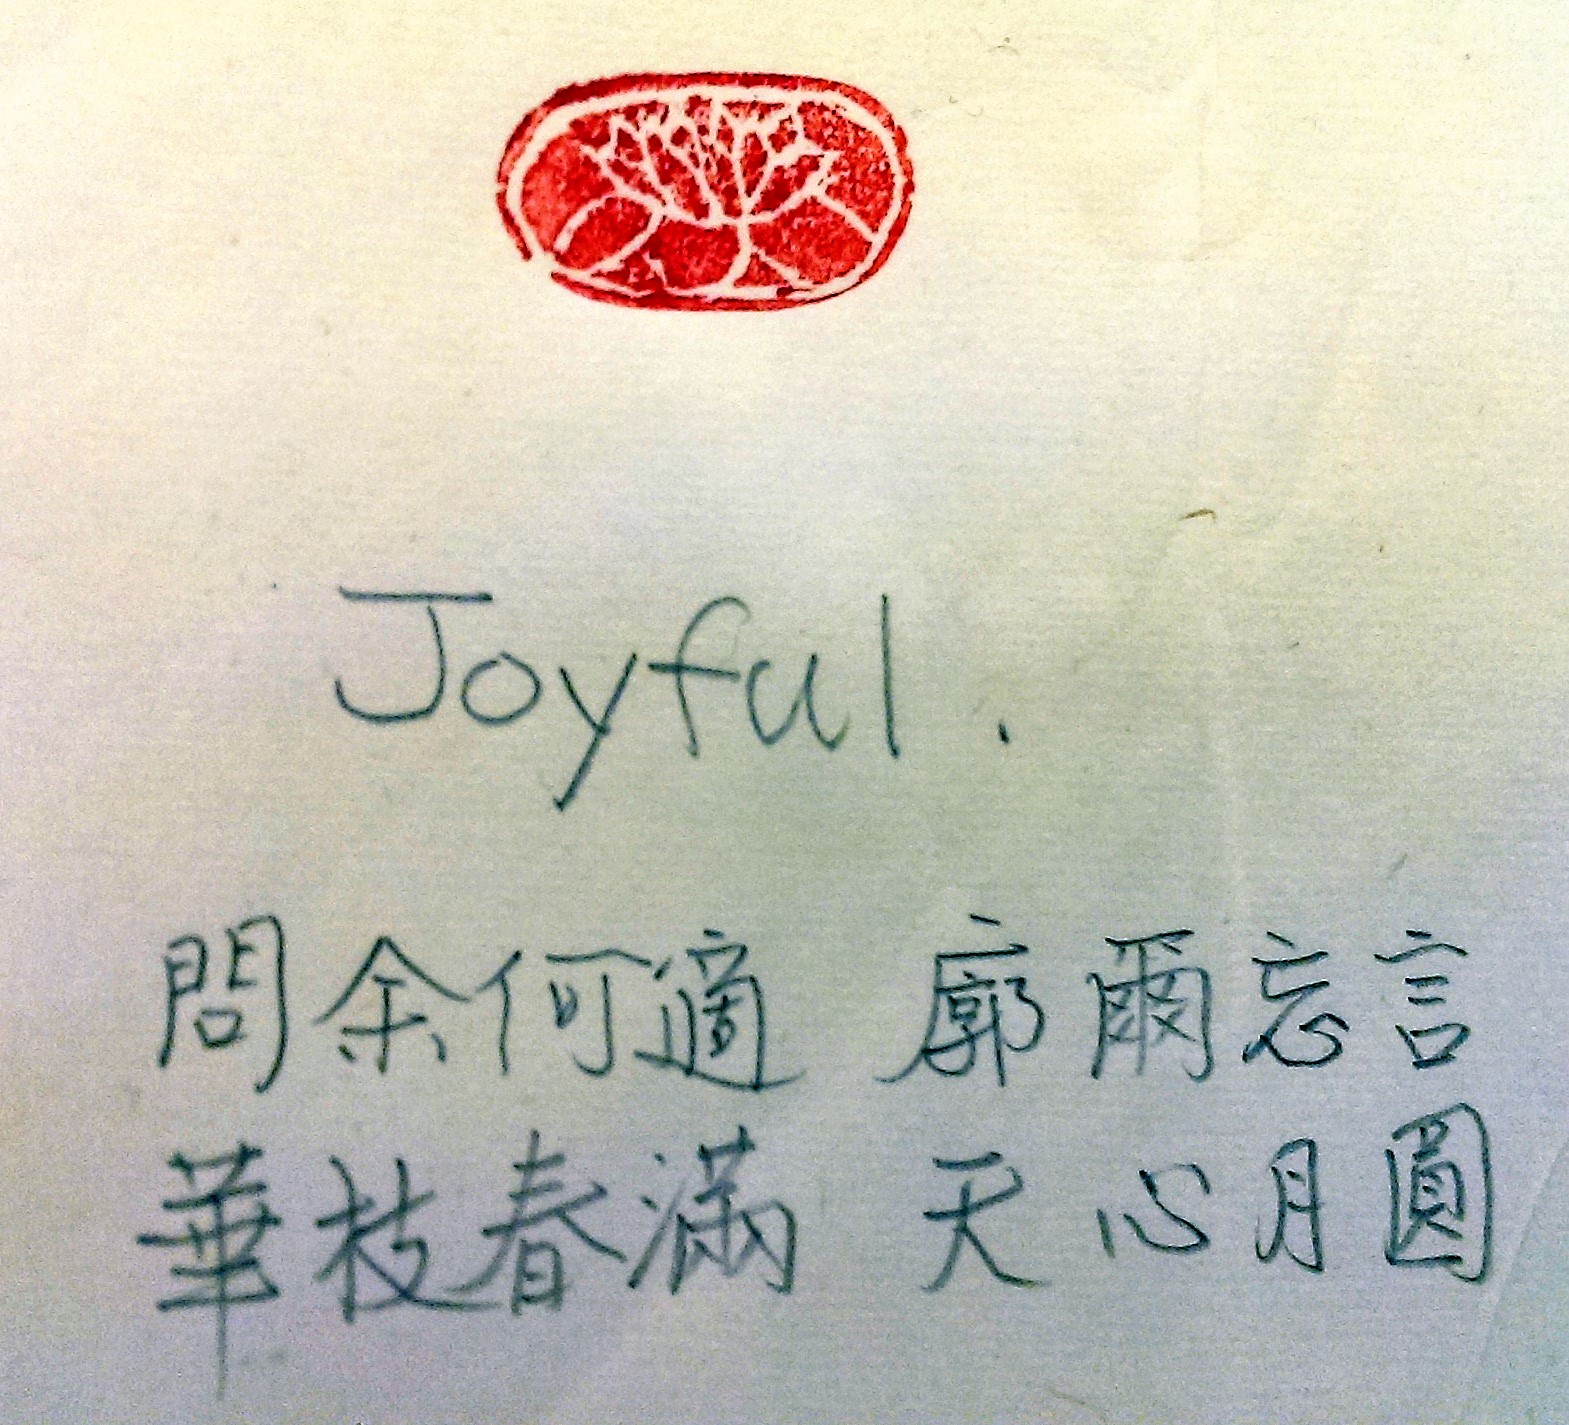 Joyful.
問余何適 廓爾忘言
華枝春滿 天心月圓